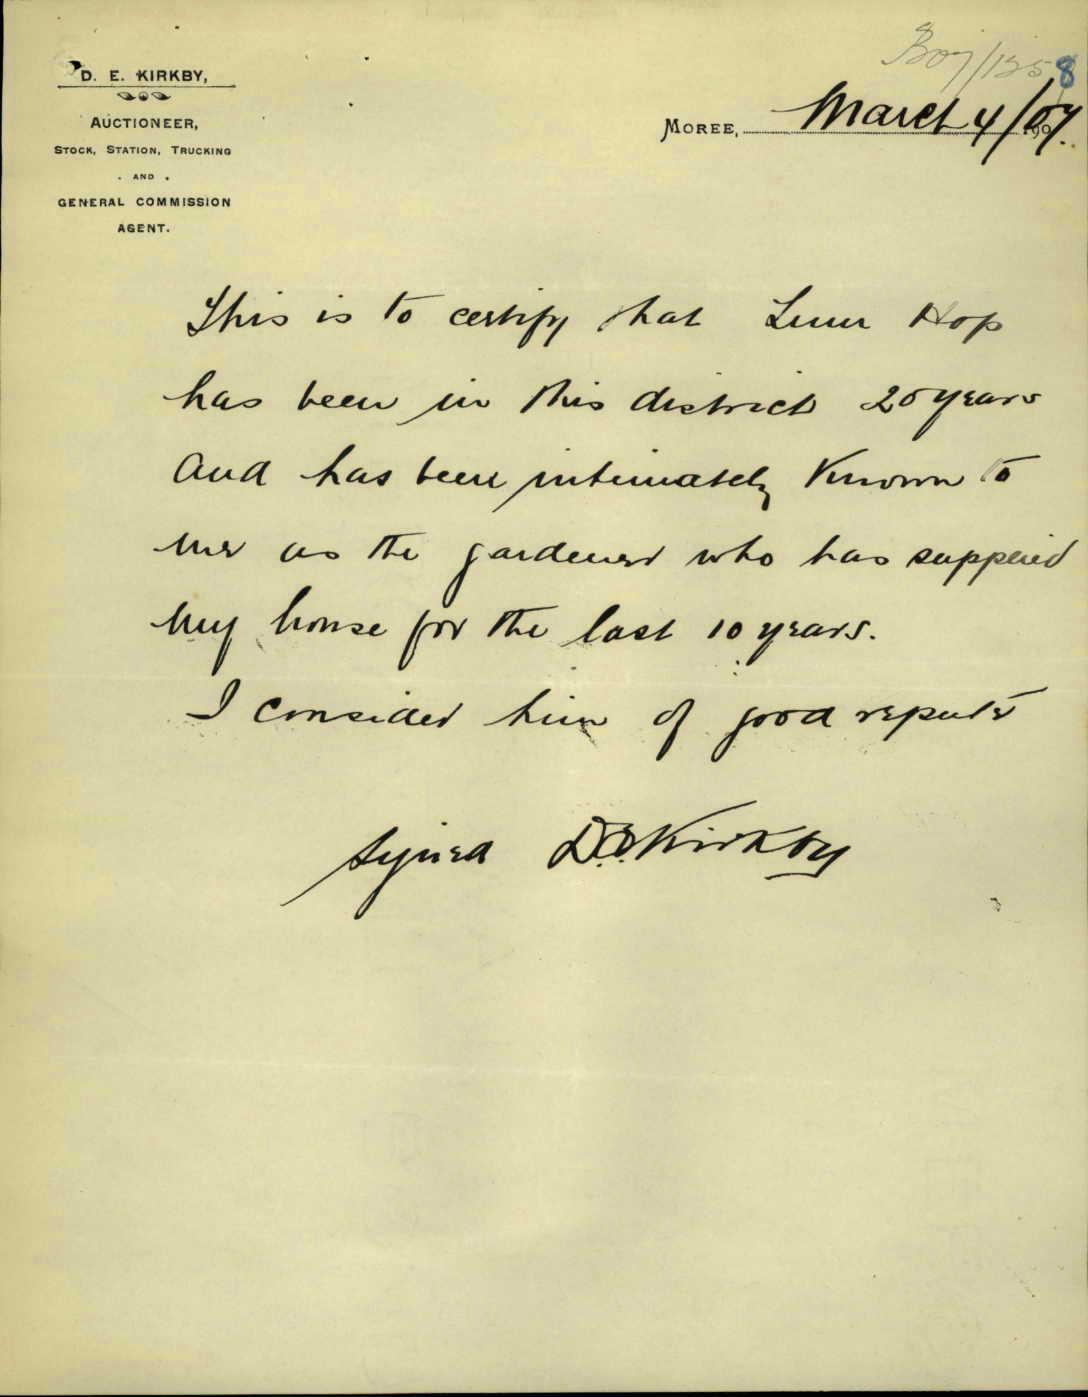 D. E. KIRKBY,
AUCTIONEER,
STOCK, STATION, TRUCKING
AND
GENERAL COMMISSION
AGENT.
8
MOREE, March 4/07.
This is to certify that Hop
has been in this district 20 years
and has been intimately known to
me as the gardener who has supplied
my house for the last 10 years.
I consider him of good repute
Signed D.E. Kirkby